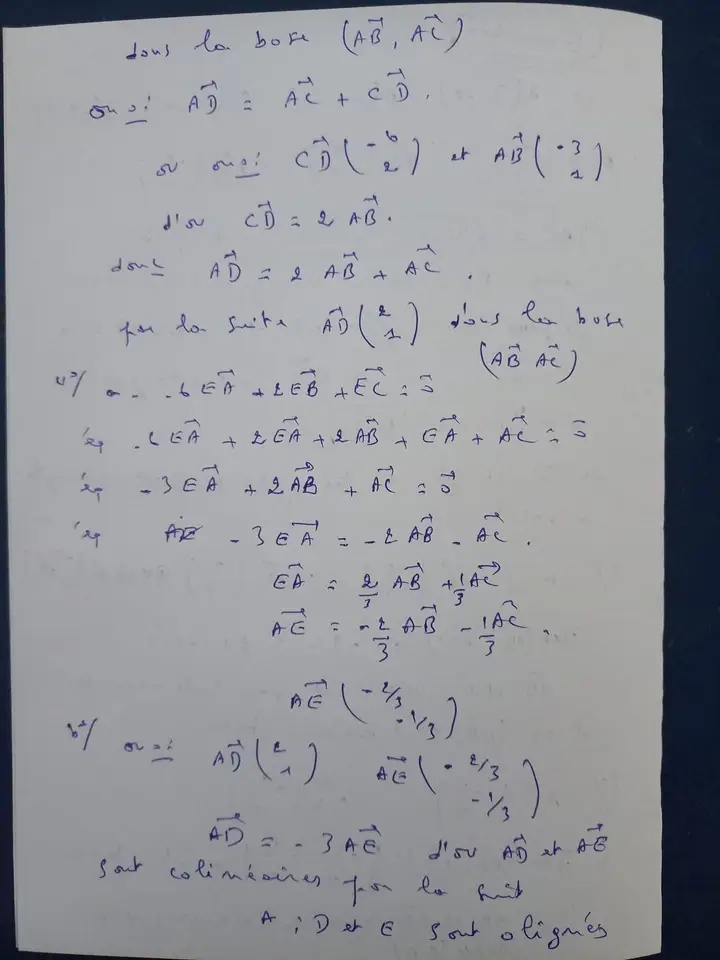 dans la base (AB⃗, AC⃗)
on a: AD⃗ = AC⃗ + CD⃗.
or on a: CD⃗ (-6 2) et AB⃗ (-3 1)
d'ou CD⃗ = 2 AB⃗.
donc AD⃗ = 2 AB⃗ + AC⃗.
par la suite AD⃗ (2 1) dans la base
(AB⃗ AC⃗)
4°/ a - -6 EA⃗ + 2EB⃗ + EC⃗ = 0⃗
éq -6 EA⃗ + 2 EA⃗ + 2 AB⃗ + EA⃗ + AC⃗ = 0⃗
éq -3 EA⃗ + 2 AB⃗ + AC⃗ = 0⃗
éq - 3 EA⃗ = -2 AB⃗ - AC⃗.
EA⃗ = 2/3 AB⃗ + 1/3 AC⃗
AE⃗ = -2/3 AB⃗ - 1/3 AC⃗.
AE⃗ (-2/3 -1/3)
b°/ on a: AD⃗ (2 1) AE⃗ (-2/3 -1/3)
AD⃗ = - 3 AE⃗ d'ou AD⃗ et AE⃗
sont colinéaires par la suit
A ; D et E sont alignés